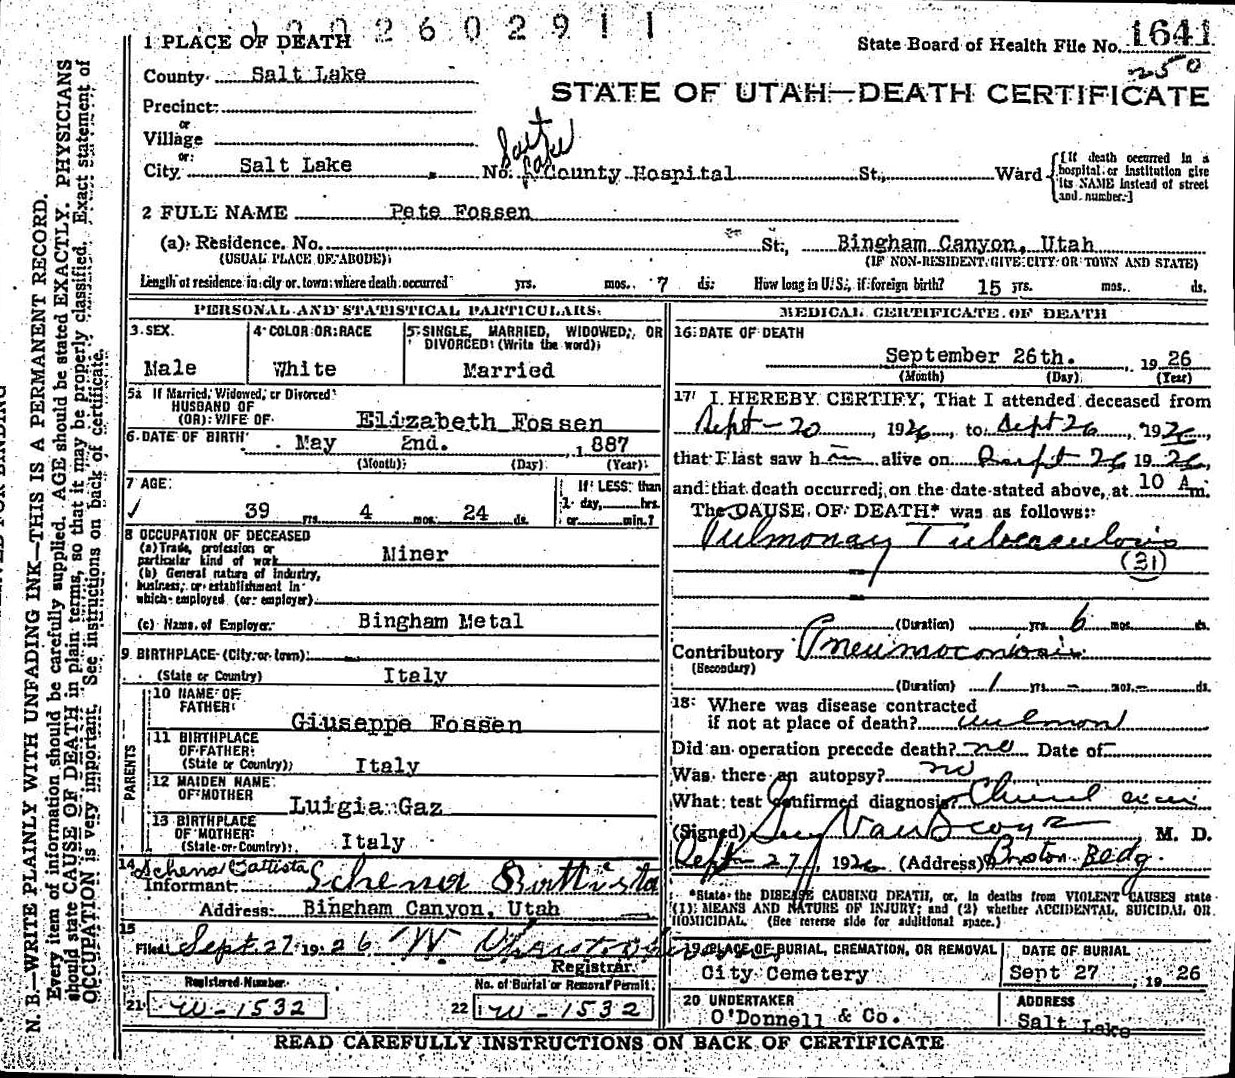 1 0 0 2 6 0 2 9 1 1
1641
State Board of Health File No.
250
1 PLACE OF DEATH
County Salt Lake
STATE OF UTAH—DEATH CERTIFICATE
Precinct
or
Village
or
City Salt Lake No. Salt Lake County Hospital St., Ward
[If death occurred in a hospital or institution give its NAME instead of street and number.]
2 FULL NAME Pete Fossen
(a) Residence. No. St., Bingham Canyon, Utah
(USUAL PLACE OF ABODE) (IF NON-RESIDENT GIVE CITY OR TOWN AND STATE)
Length of residence in city or town where death occurred yrs. mos. 7 ds. How long in U.S., if foreign birth? 15 yrs. mos. ds.
PERSONAL AND STATISTICAL PARTICULARS
3 SEX
Male
4 COLOR OR RACE
White
5 SINGLE, MARRIED, WIDOWED, OR DIVORCED (Write the word)
Married
5a If Married, Widowed, or Divorced
HUSBAND OF
(OR) WIFE OF Elizabeth Fossen
6 DATE OF BIRTH May 2nd. , 1887
(Month) (Day) (Year)
7 AGE
39 yrs. 4 mos. 24 ds.
If LESS than
1 day, hrs.
or min.?
8 OCCUPATION OF DECEASED
(a) Trade, profession or
particular kind of work Miner
(b) General nature of industry,
business, or establishment in
which employed (or employer)
(c) Name of Employer Bingham Metal
9 BIRTHPLACE (City or town)
(State or Country) Italy
PARENTS
10 NAME OF
FATHER
Giuseppe Fossen
11 BIRTHPLACE
OF FATHER
(State or Country) Italy
12 MAIDEN NAME
OF MOTHER
Luigia Gaz
13 BIRTHPLACE
OF MOTHER
(State or Country) Italy
14 Schena Battista
Informant Schena Battista
Address Bingham Canyon, Utah
15
Filed Sept. 27 1926 W.
Registrar
Registered Number
21 W-1532
No. of Burial or Removal Permit
22 W-1532
MEDICAL CERTIFICATE OF DEATH
16 DATE OF DEATH
September 26th. , 1926
(Month) (Day) (Year)
17 I HEREBY CERTIFY, That I attended deceased from
Sept - 20 , 1926, to Sept 26, 1926,
that I last saw him alive on Sept 26 1926,
and that death occurred, on the date stated above, at 10 A m.
The CAUSE OF DEATH* was as follows:
Pulmonary Tuberculosis
(31)
(Duration) yrs. 6 mos. ds.
Contributory Pneumoconiosis
(Secondary)
(Duration) 1 yrs. – mos. – ds.
18 Where was disease contracted
if not at place of death? unknown
Did an operation precede death? no Date of –
Was there an autopsy? no
What test confirmed diagnosis? Clinical
(Signed) M. D.
Sept 27, 1926 (Address) Boston Bldg.
*State the DISEASE CAUSING DEATH, or, in deaths from VIOLENT CAUSES state
(1) MEANS AND NATURE OF INJURY; and (2) whether ACCIDENTAL, SUICIDAL OR
HOMICIDAL. (See reverse side for additional space.)
19 PLACE OF BURIAL, CREMATION, OR REMOVAL
City Cemetery
DATE OF BURIAL
Sept 27 , 1926
20 UNDERTAKER
O'Donnell & Co.
ADDRESS
Salt Lake
READ CAREFULLY INSTRUCTIONS ON BACK OF CERTIFICATE
N. B.—WRITE PLAINLY WITH UNFADING INK—THIS IS A PERMANENT RECORD.
Every item of information should be carefully supplied. AGE should be stated EXACTLY. PHYSICIANS
should state CAUSE OF DEATH in plain terms, so that it may be properly classified. Exact statement of
OCCUPATION is very important. See instructions on back of certificate.